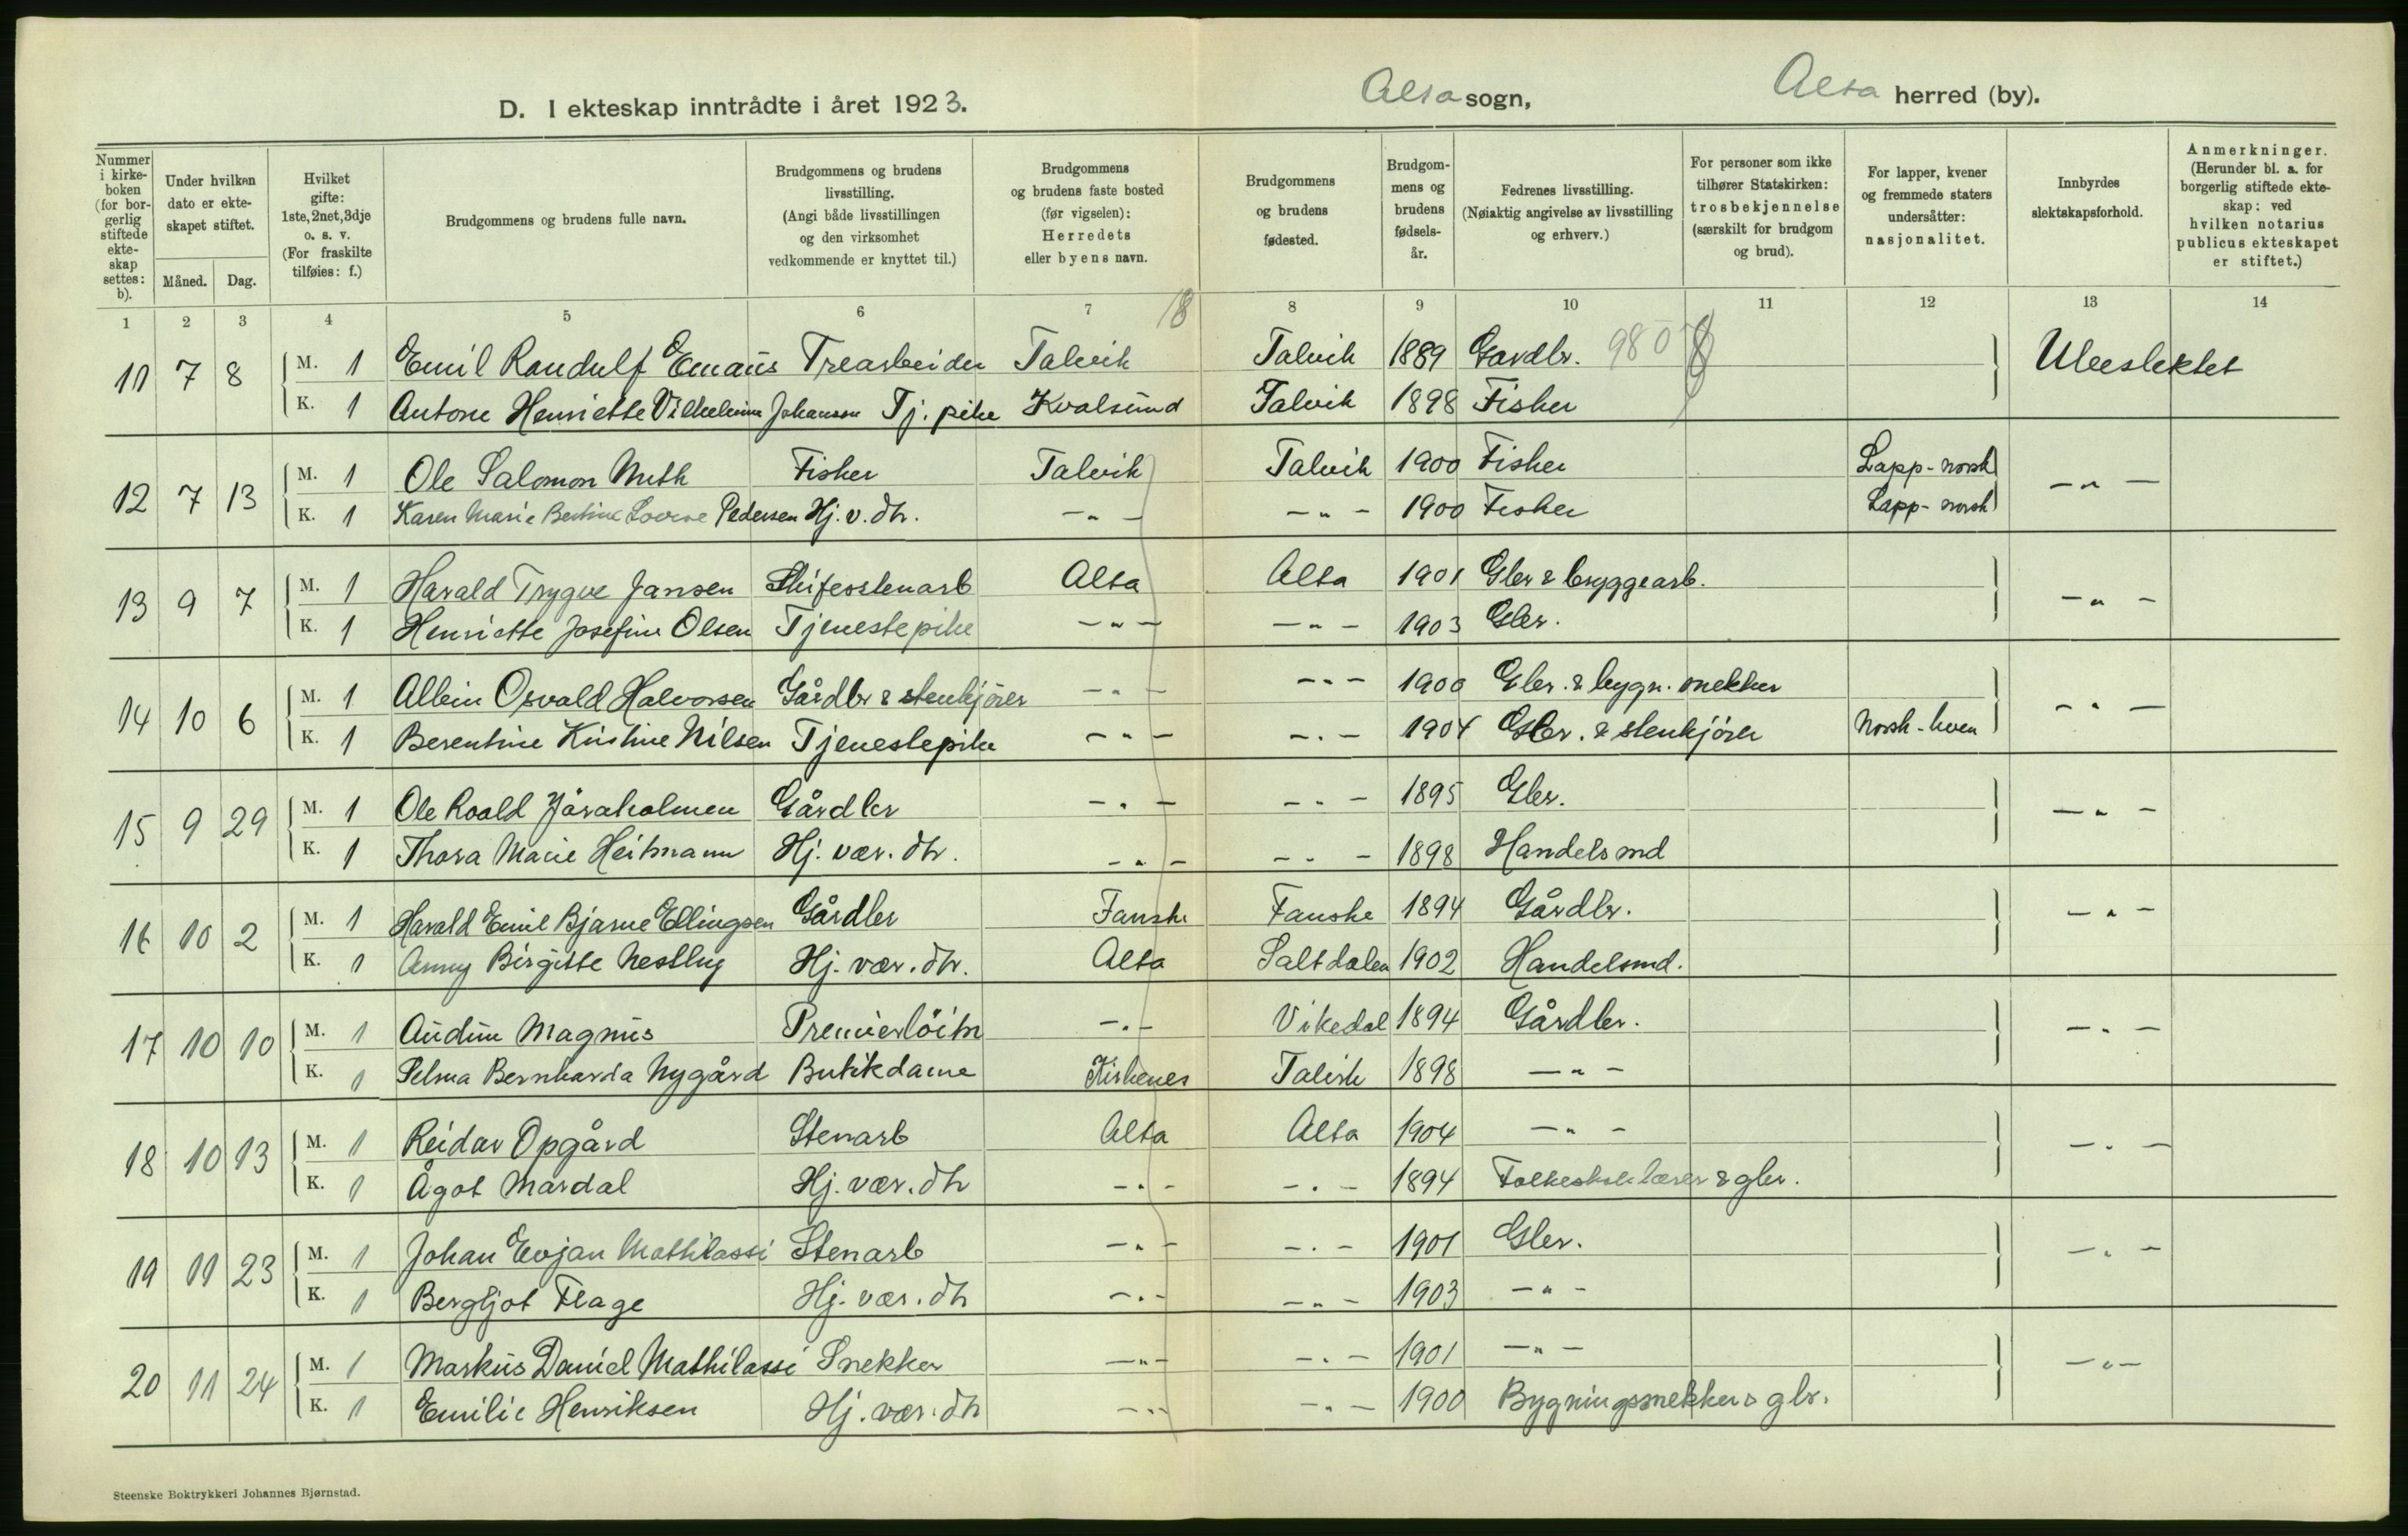 D. I ekteskap inntrådte i året 1923.
Alta sogn,
Alta herred (by).
Nummer i kirkeboken (for borgerlig stiftede ekteskap settes: b).
Under hvilken dato er ekteskapet stiftet.
Måned. Dag.
Hvilket gifte: 1ste, 2net, 3dje o. s. v. (For fraskilte tilføies: f.)
Brudgommens og brudens fulle navn.
Brudgommens og brudens livsstilling. (Angi både livsstillingen og den virksomhet vedkommende er knyttet til.)
Brudgommens og brudens faste bosted (før vigselen): Herredets eller byens navn.
Brudgommens og brudens fødested.
Brudgommens og brudens fødselsår.
Fedrenes livsstilling. (Nøiaktig angivelse av livsstilling og erhverv.)
For personer som ikke tilhører Statskirken: trosbekjennelse (særskilt for brudgom og brud).
For lapper, kvener og fremmede staters undersåtter: nasjonalitet.
Innbyrdes slektskapsforhold.
Anmerkninger. (Herunder bl. a. for borgerlig stiftede ekteskap: ved hvilken notarius publicus ekteskapet er stiftet.)
1 2 3 4 5 6 7 18 8 9 10 11 12 13 14
11 7 8 M. 1 Emil Randulf Emaus Trearbeider Talvik Talvik 1889 Gardbr. 980 Ubeslektet
K. 1 Antone Henriette Vilhelmine Johansen Tj. pike Kvalsund Talvik 1898 Fisker
12 7 13 M. 1 Ole Salomon Muth Fisker Talvik Talvik 1900 Fisker Lapp-norsk - " -
K. 1 Karen Marie Bertine Lovise Pedersen Hj. v. dtr. - " - - " - 1900 Fisker Lapp-norsk
13 9 7 M. 1 Harald Trygve Jansen Skiferstenarb Alta Alta 1901 Gbr & bryggearb. - " -
K. 1 Henriette Josefine Olsen Tjenestepike - " - - " - 1903 Gbr.
14 10 6 M. 1 Albin Osvald Halvorsen Gårdbr & stenkjörer - " - - " - 1900 Gbr. & bygn. snekker - " -
K. 1 Berentine Kristine Nilsen Tjenestepike - " - - " - 1904 Gbr. & stenkjörer Norsk-kven
15 9 29 M. 1 Ole Roald Jåraholmen Gårdbr - " - - " - 1895 Gbr. - " -
K. 1 Thora Marie Heitmann Hj. vær. dtr. - " - - " - 1898 Handelsmd
16 10 2 M. 1 Harald Emil Bjarne Ellingsen Gårdbr Fauske Fauske 1894 Gårdbr. - " -
K. 1 Anny Birgitte Nestby Hj. vær. dtr. Alta Saltdalen 1902 Handelsmd.
17 10 10 M. 1 Audun Magnus Premierlöitn - " - Vikedal 1894 Gårdbr. - " -
K. 1 Selma Bernharda Nygård Butikdame Kirkenes Talvik 1898 - " -
18 10 13 M. 1 Reidar Opgård Stenarb Alta Alta 1904 - " - - " -
K. 1 Ågot Mardal Hj. vær. dtr - " - - " - 1894 Folkeskolelærer & gbr.
19 11 23 M. 1 Johan Evjan Mathilassi Stenarb - " - - " - 1901 Gbr. - " -
K. 1 Bergljot Flage Hj. vær. dtr - " - - " - 1903 - " -
20 11 24 M. 1 Markus Daniel Mathilassi Snekker - " - - " - 1901 - " - - " -
K. 1 Emilie Henriksen Hj. vær. dtr - " - - " - 1900 Bygningssnekker & gbr.
Steenske Boktrykkeri Johannes Bjørnstad.